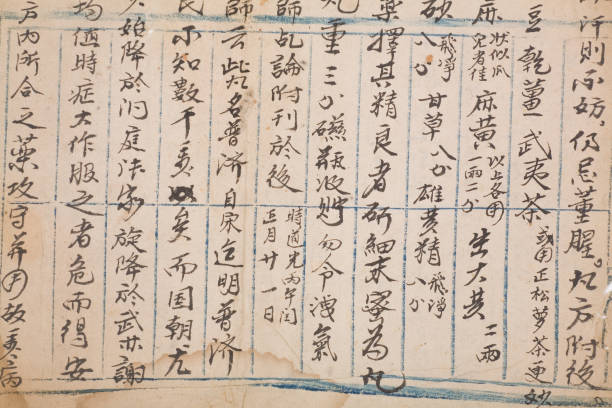 汗則不妨，仍忌葷腥。丸方附後
豆 乾薑 武夷茶 或用正松萝茶更妙
麻 狀似瓜兒者佳 麻黄 以上各用一兩二分 生大黄 二兩
砂 飛淨八分 甘草 八分 雄黄精 飛淨八分
藥擇其精良者研細末蜜為丸
丸重三分磁瓶收贮勿令洩氣
師乩論附刊於後 時道光丙午閏五月廿一日
師云此名普济 自宋迄明普济
民不知數千矣而国朝尤
始降於洞庭法家旋降於武林謝
均值時症大作服之者危而得安
戶內所合之藥攻守并用故病